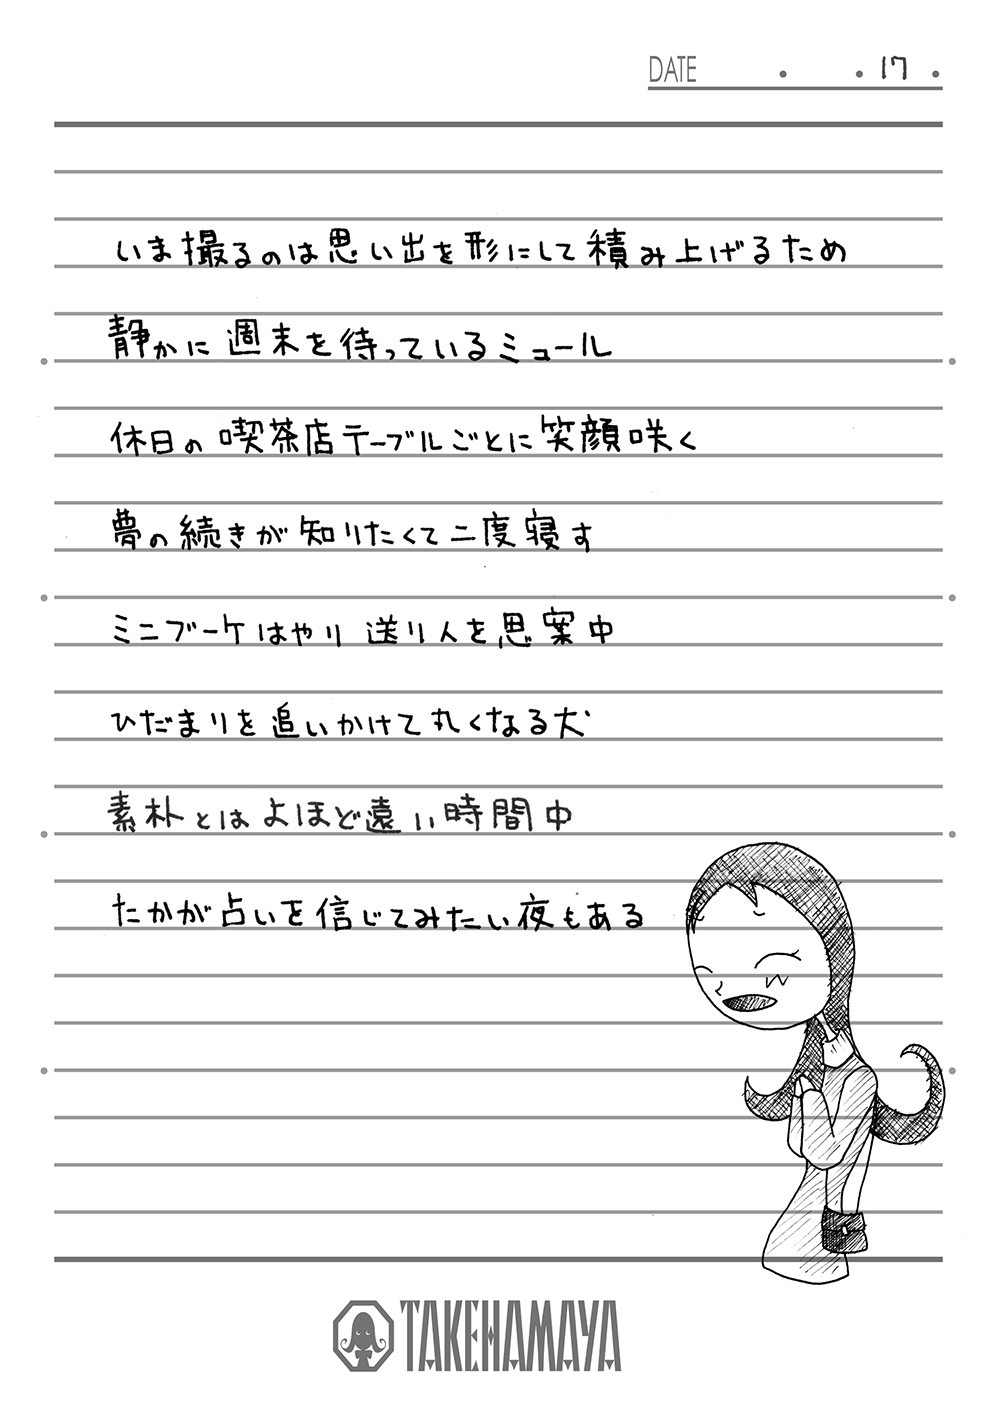 DATE ・ ・17・
いま撮るのは思い出を形にして積み上げるため
静かに週末を待っているミュール
休日の喫茶店テーブルごとに笑顔咲く
夢の続きが知りたくて二度寝す
ミニブーケはやり 送り人を思案中
ひだまりを追いかけて丸くなる犬
素朴とはよほど遠い時間中
たかが占いを信じてみたい夜もある
TAKEHAMAYA